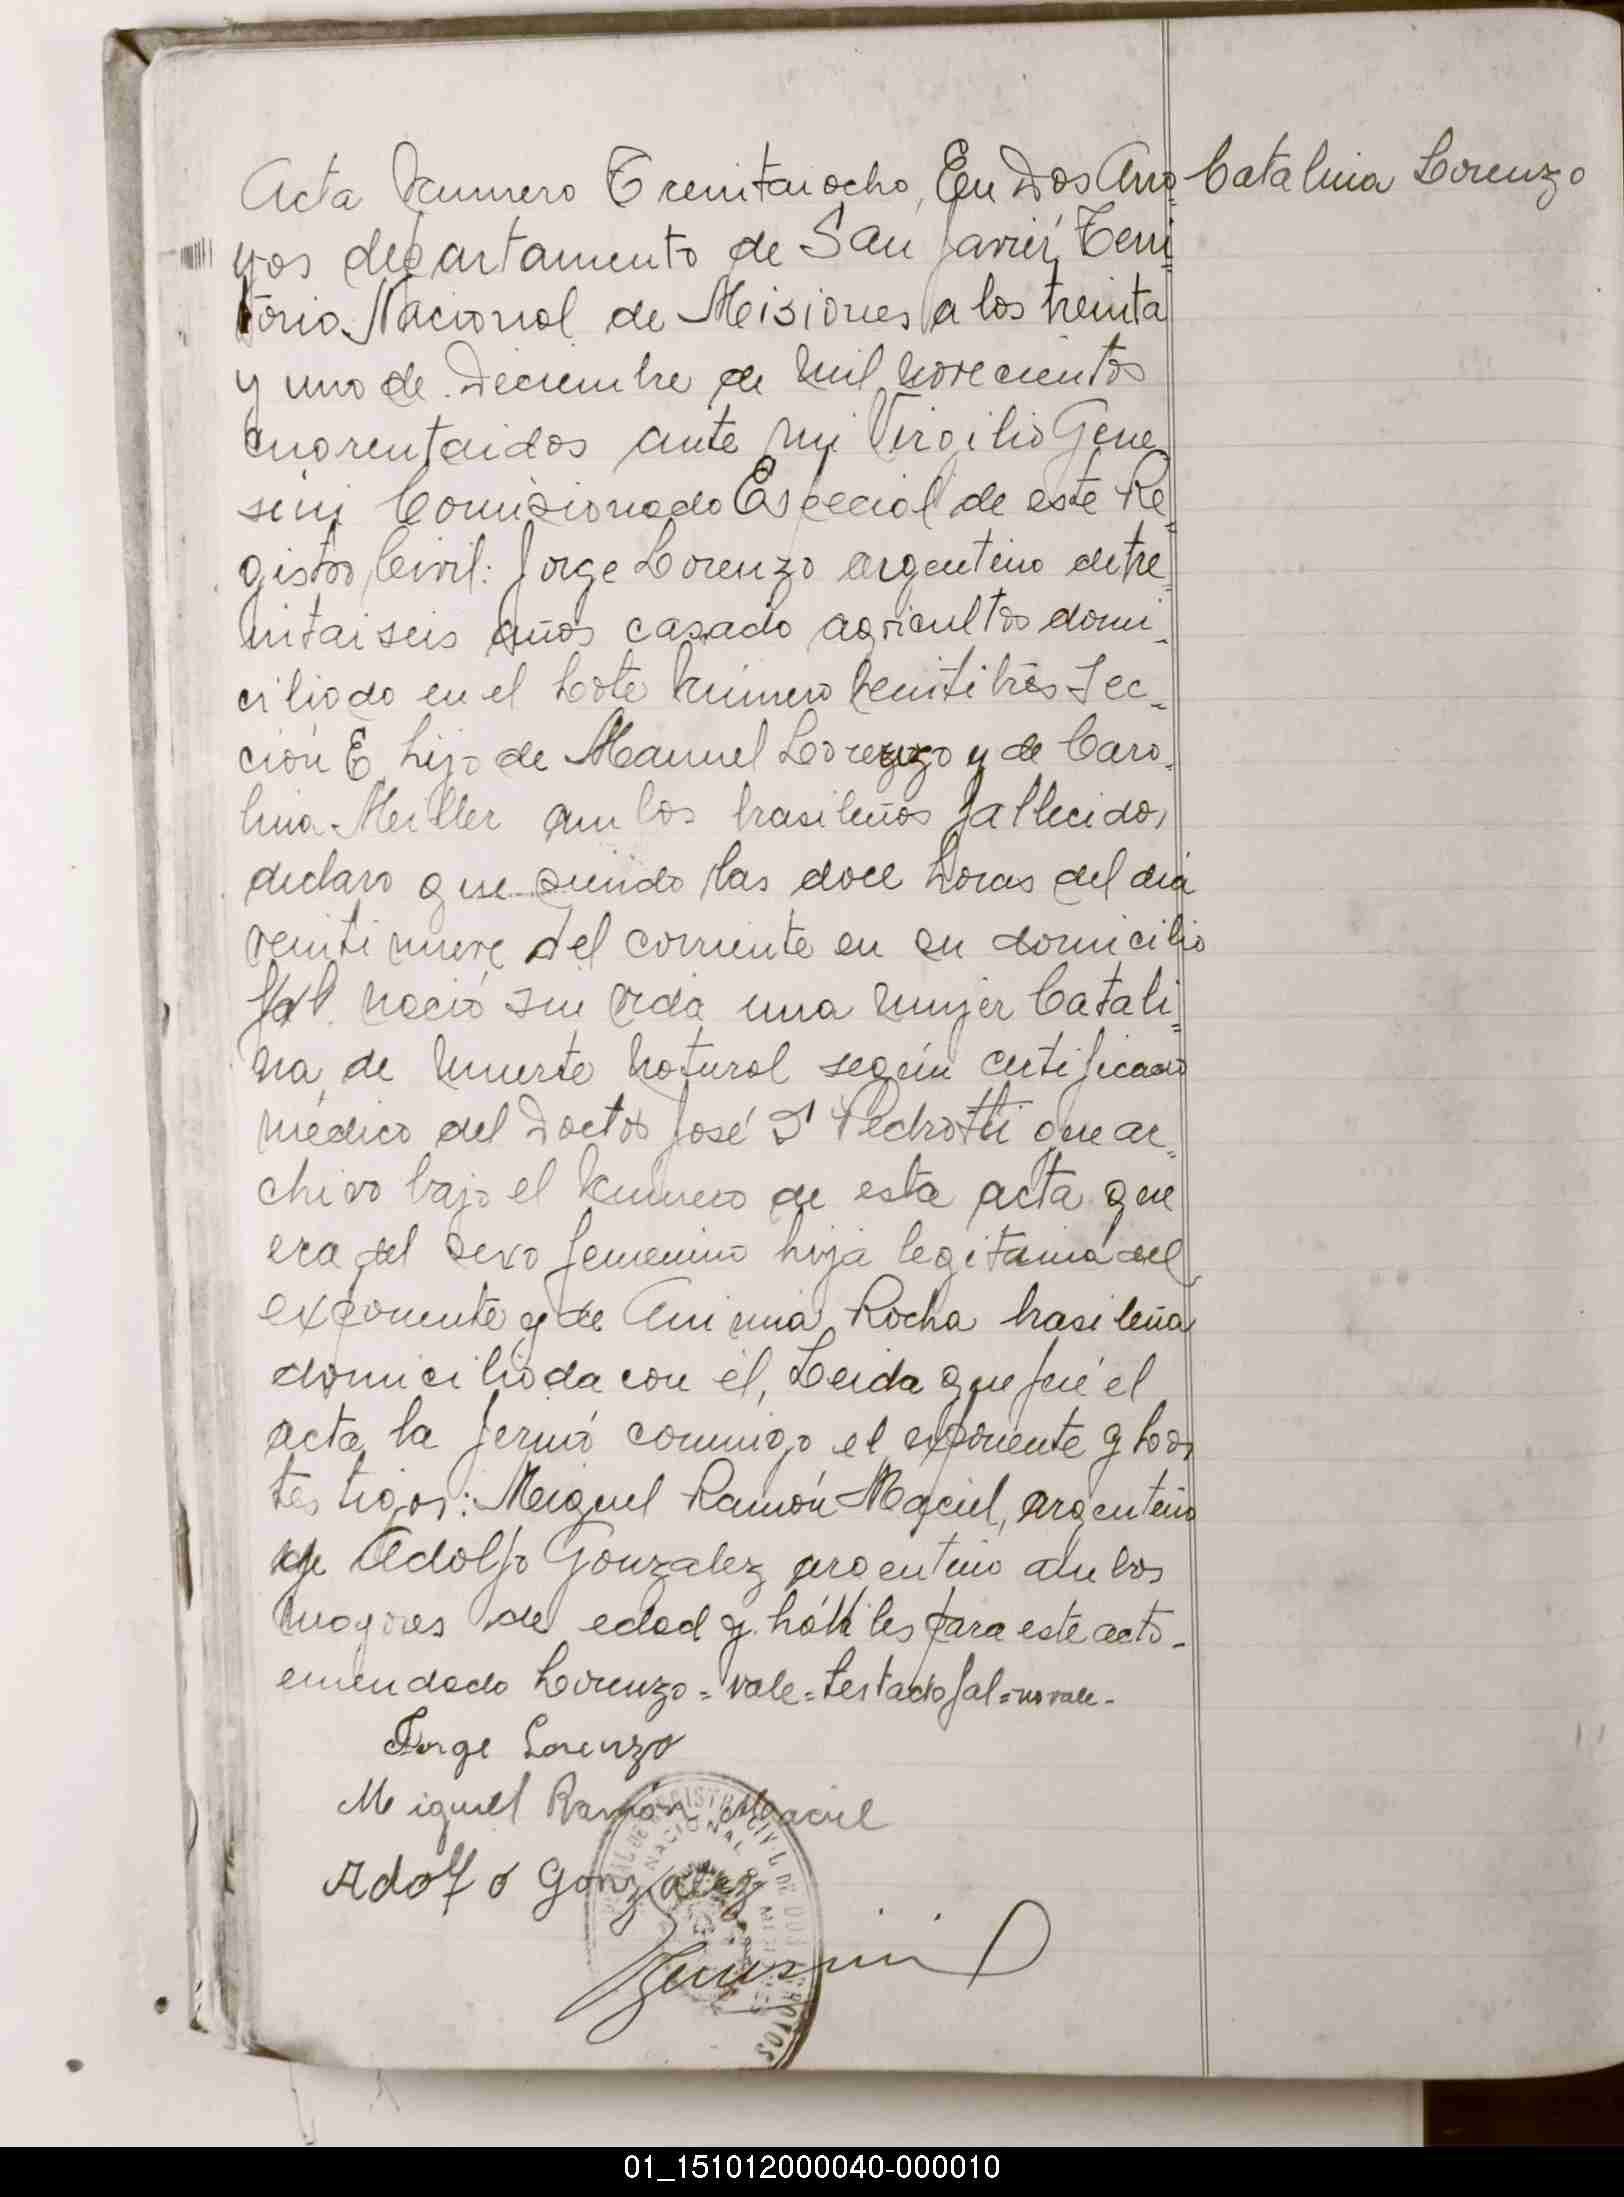 Acta Numero Trenitaiocho, En Dos Arro- Catalina Lorenzo
yos departamento de San Javier, Terri
torio Nacional de Misiones a los treinta
y uno de Diciembre de mil novecientos
cuarentaidos ante mi Virgilio Gene
sini Comisionado Especial de este Re
gistro Civil: Jorge Lorenzo argentino de tre
intaiseis años casado agricultor domi
ciliado en el Lote Número veintitrés Sec
ción E hijo de Manuel Lorenzo y de Caro
lina Meiller ambos brasileños fallecidos
declaro que siendo las doce horas del dia
veinti nueve del corriente en su domicilio
fal nació sin vida una mujer Catali
na de muerte natural según certificado
médico del Doctor José Pedrotti que ar
chivo bajo el numero de esta acta que
era del sexo femenino hija legitima del
exponente y de Brasileña Rocha brasileña
domiciliada con él, Leida que fué el
acta la firmó conmigo el exponente y los
testigos: Meiguel Ramón Maciel, argentino
y Adolfo Gonzalez argentino ambos
mayores de edad y hábiles para este acto-
emendado Lorenzo=vale=testado fal=no vale-
Jorge Lorenzo
Miguel Ramón Maciel
Adolfo Gonzalez
01_151012000040-000010